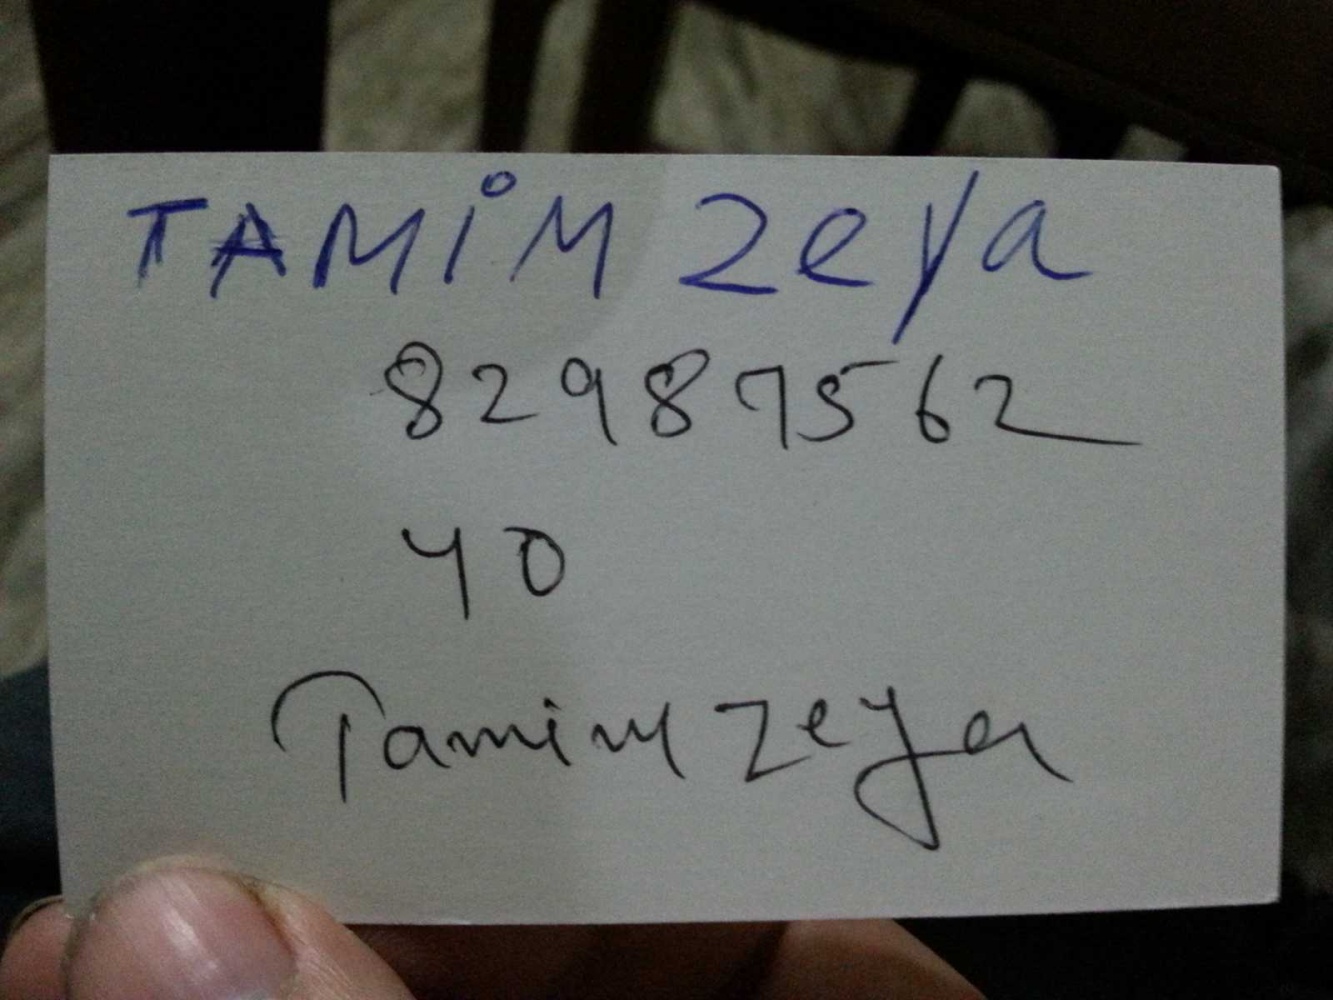 TAMiM zeya
82987562
40
Tamim zeya